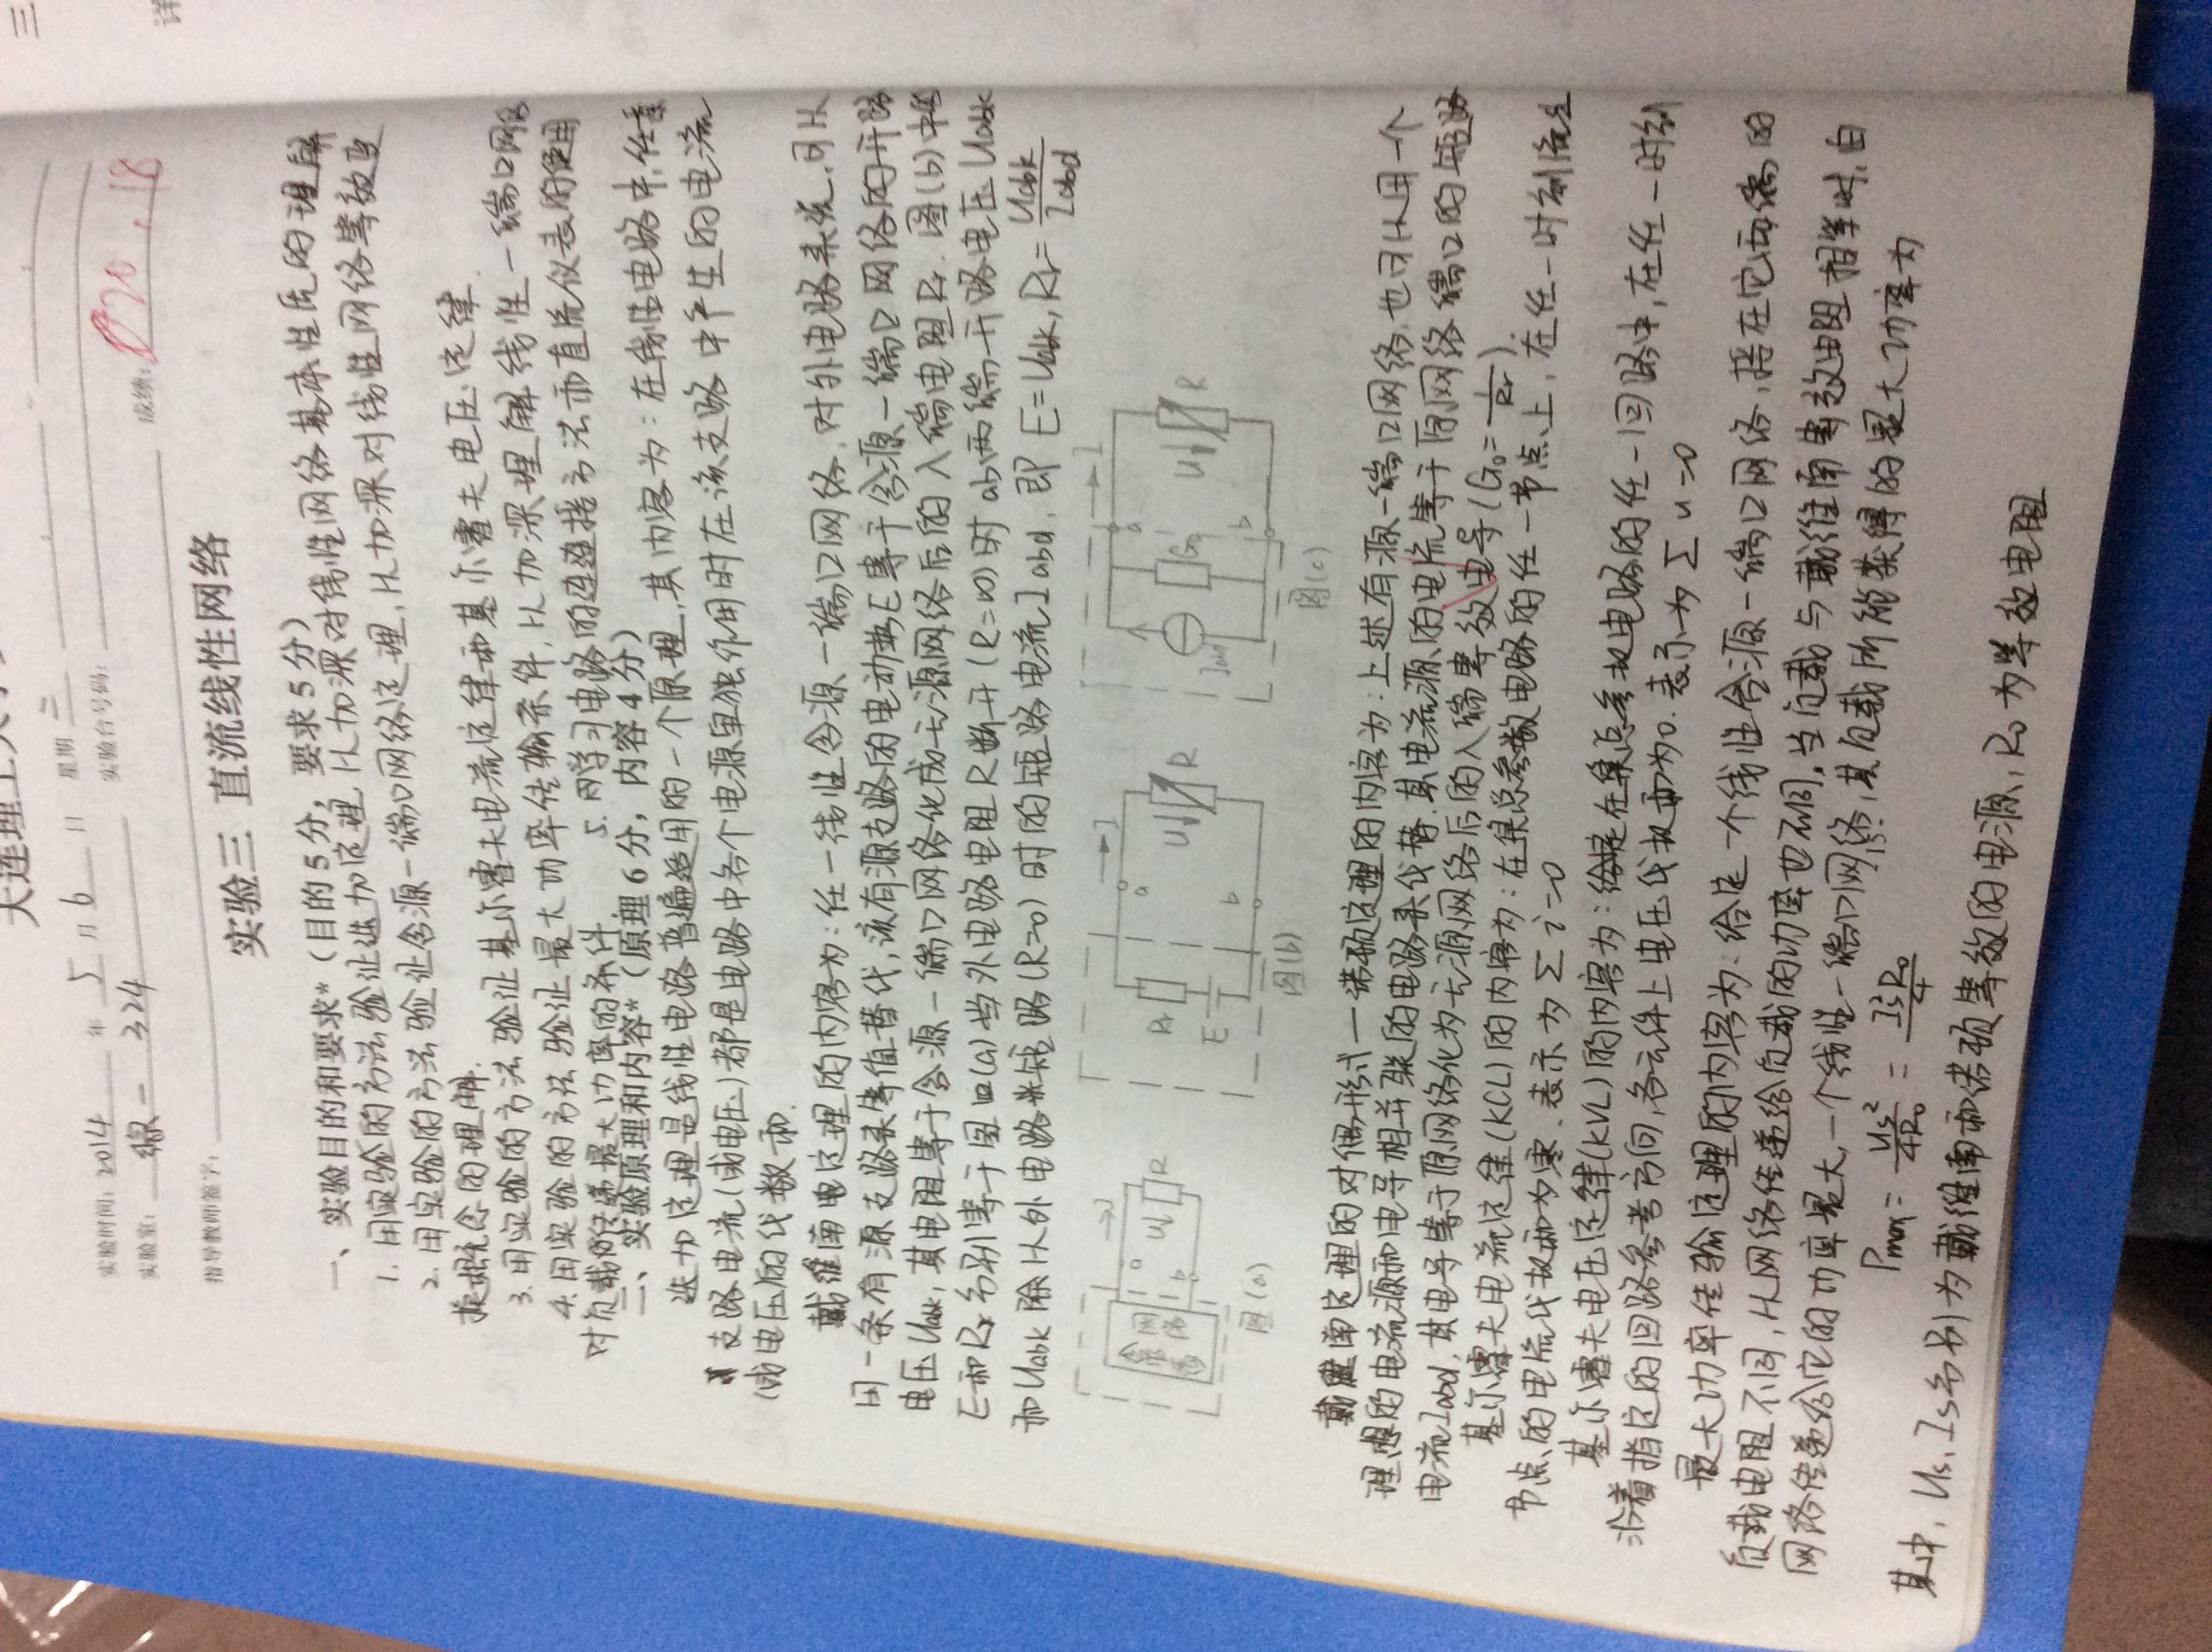 大连理工大学
实验三 直流线性网络
实验时间: 2014 年 5 月 6 日 星期 二
实验室: 综-324 实验台号码: 成绩: 18
指导教师签字:
一、实验目的和要求*(目的5分, 要求5分)
1. 用实验的方法验证迭加定理 以加深对线性网络基本性质的理解
2. 用实验的方法验证含源一端口网络定理, 以加深对线性网络等效变
换概念的理解.
3. 用实验的方法验证基尔霍夫电流定律和基尔霍夫电压定律.
4. 用实验的方法验证最大功率传输条件, 以加深理解线性一端口网络
对负载的传输最大功率的条件 5. 学习电路的连接方法和直流仪表的使用
二、实验原理和内容*(原理6分, 内容4分)
迭加定理是线性电路普遍适用的一个原理, 其内容为: 在线性电路中, 任意
支路电流(或电压)都是电路中各个电源单独作用时在该支路中产生的电流
(或电压)的代数和.
戴维南定理的内容为: 任一线性含源一端口网络, 对外电路来说, 可以
用一条有源支路来等值替代, 该有源支路的电动势E等于含源一端口网络的开路
电压Uabk, 其电阻等于含源一端口网络化成无源网络后的入端电阻R. 图(b)中的
E和R分别等于图(a)当外电路电阻R断开(R=∞)时ab两端开路电压Uabk
和Uabk除以外电路短路(R=0)时的短路电流Iabd, 即 E=Uabk, R=Uabk/Iabd
I I I
a a a
U R R E U R Iabd U R
b b b
含源网络
图(a) 图(b) 图(c)
戴维南定理的对偶形式——诺顿定理的内容为: 上述有源一端口网络, 也可以用一个
理想的电流源和电导相并联的电路来代替, 其电流源的电流等于原网络端口的短路
电流Iabd, 其电导等于原网络化为无源网络后的入端等效电导(G₀=1/R).
基尔霍夫电流定律(KCL)的内容为: 在集总参数电路的任一节点上, 在任一时刻流经
节点的电流代数和为零. 表示为 Σi=0
基尔霍夫电压定律(KVL)的内容为: 在集总参数电路的任一回路中, 在任一时刻
沿着指定的回路参考方向, 各元件上电压代数和为0. 表示为 Σu=0
最大功率传输定理的内容为: 给定一个线性含源一端口网络, 若在它两端的
负载电阻不同, 从网络传递给负载的功率也不同. 当负载与戴维南等效电阻相等时, 由
网络传递给它的功率最大, 一个线性一端口网络, 其负载所能获得的最大功率为
Pmax = Us²/4R₀ = Is²R₀/4
其中, Us、Is分别为戴维南和诺顿等效的电源, R₀为等效电阻